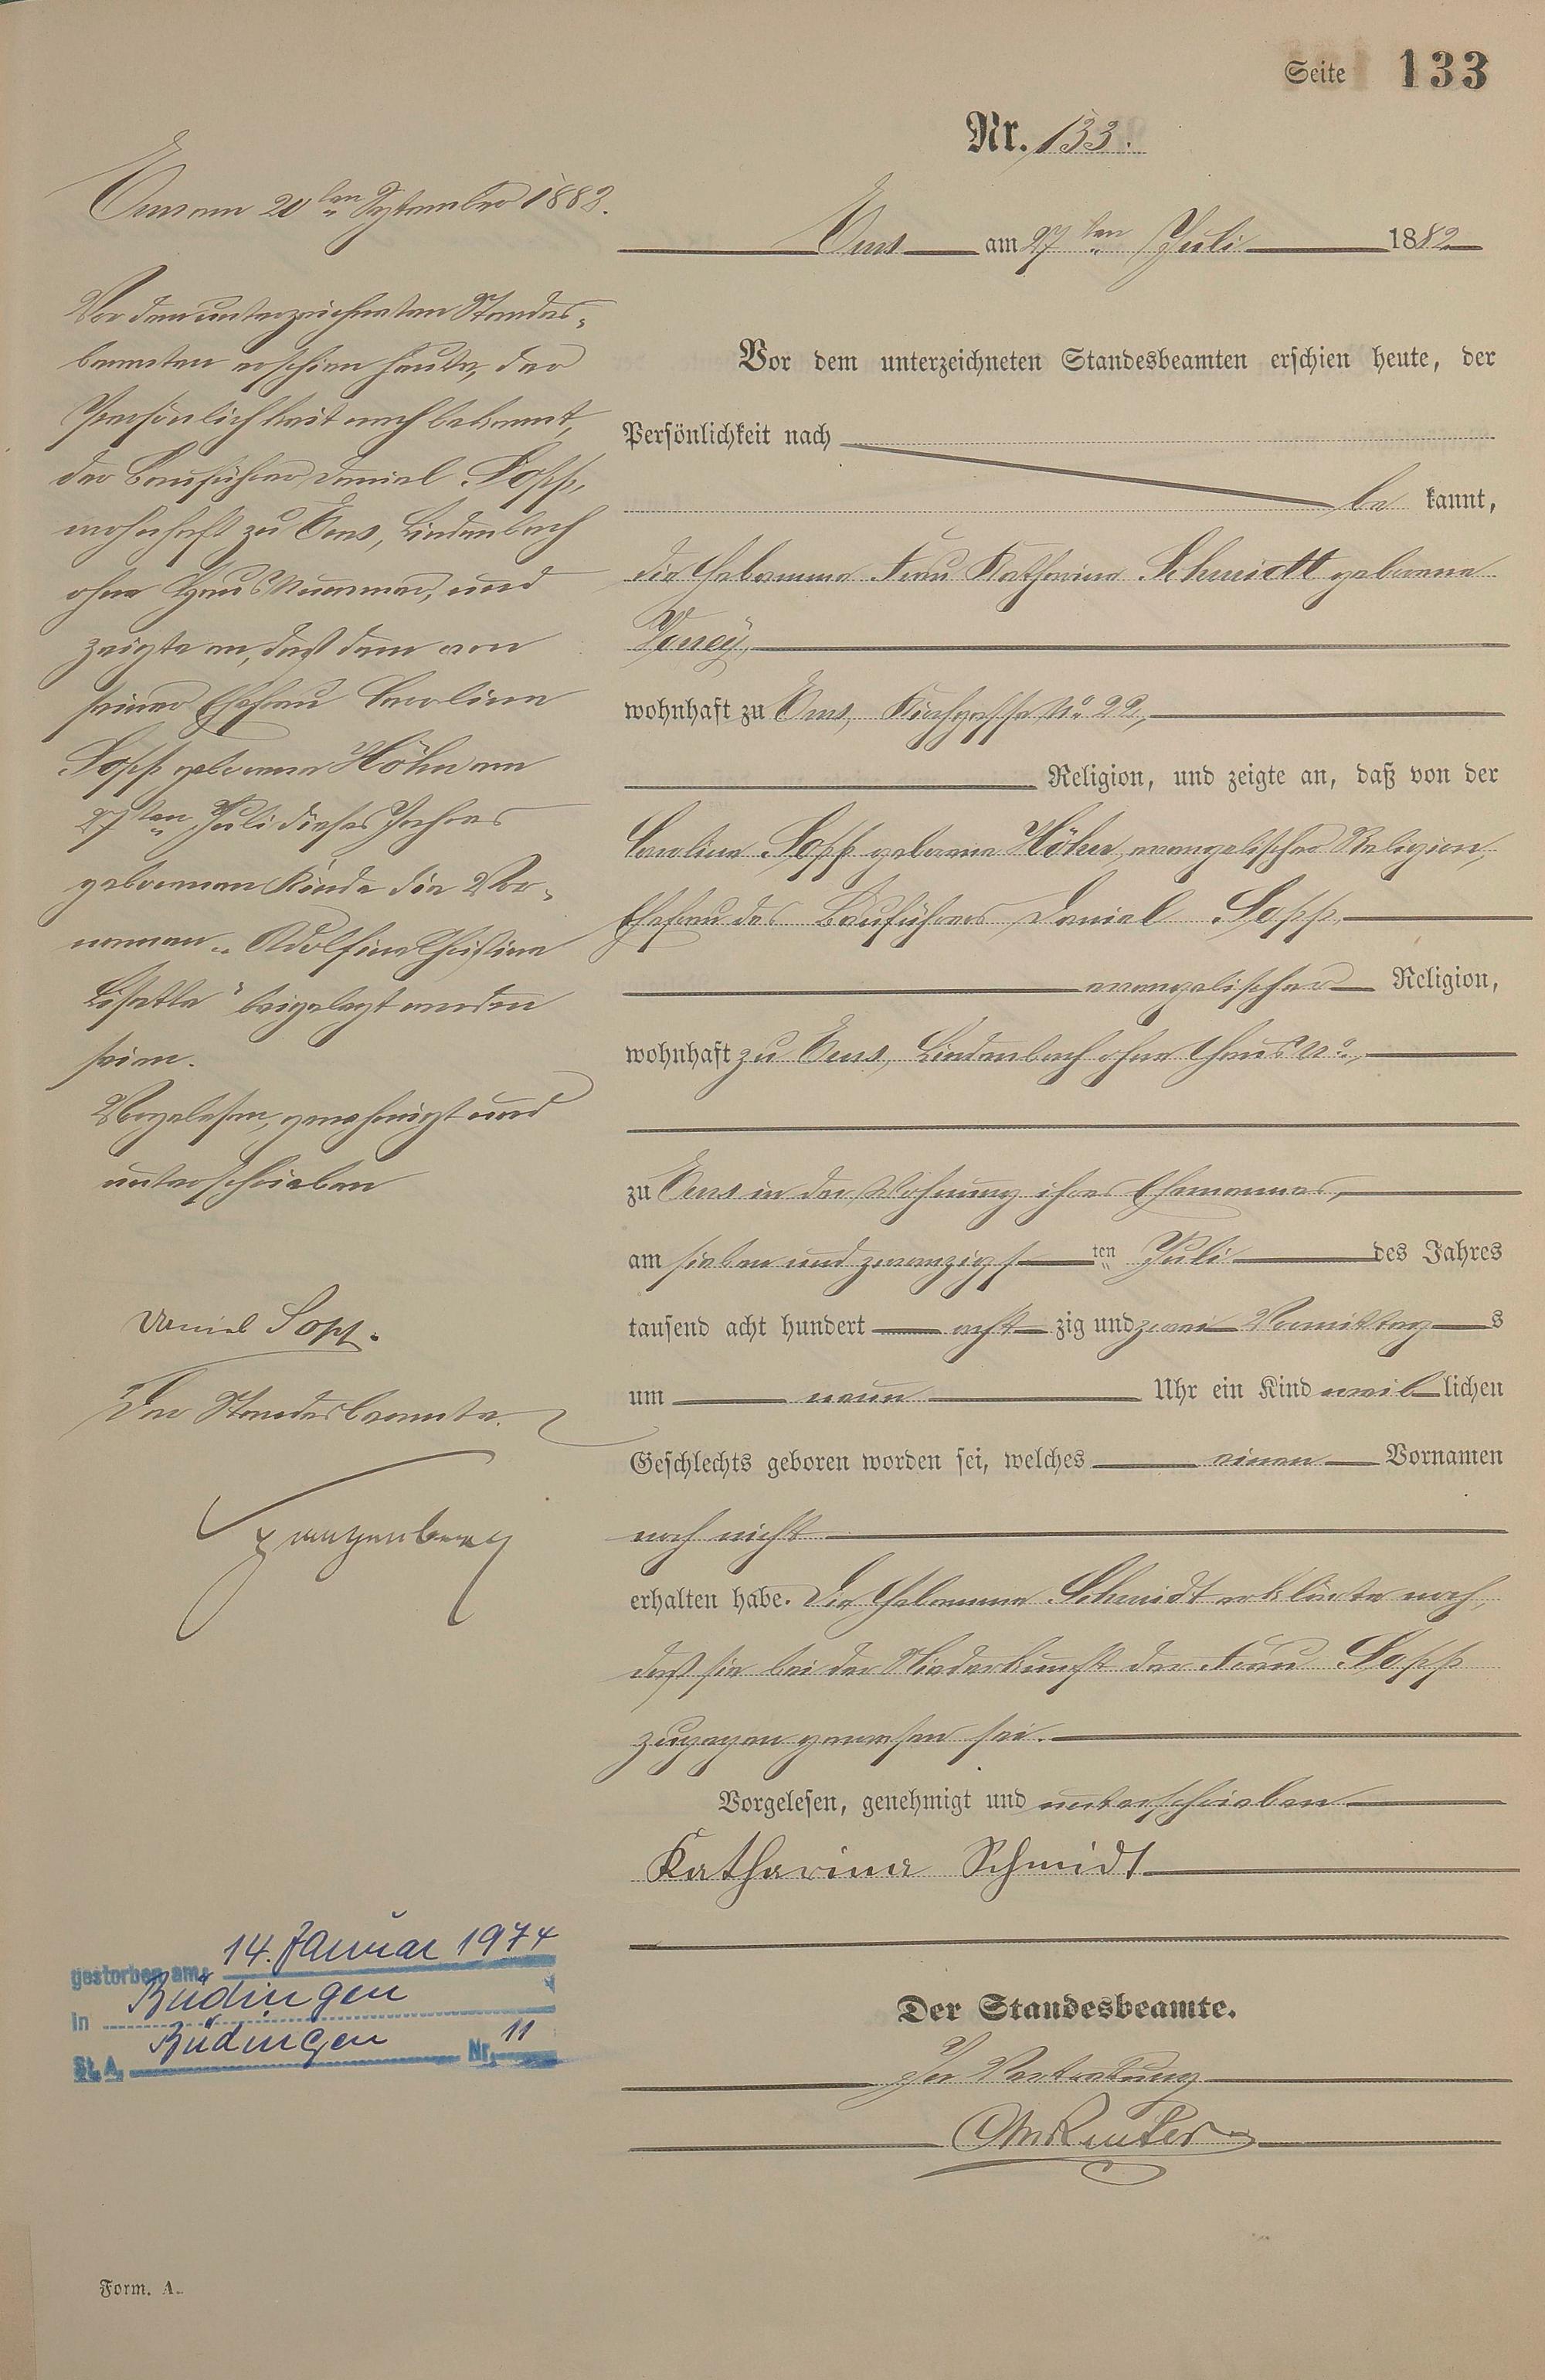 Seite 133
Nr. 133.
Ems am 27ten Juli 1882
Vor dem unterzeichneten Standesbeamten erschien heute, der
Persönlichkeit nach
be kannt,
die Hebamme Frau Katharina Schmidt geborene
wohnhaft zu Ems, Kirchgasse No 22,
Religion, und zeigte an, daß von der
Caroline Sopp geborene Höhn, evangelischer Religion,
Ehefrau des Bauführers Daniel Sopp,
evangelischer Religion,
wohnhaft zu Ems, Lindenbach ohne Haus No,
zu Ems in der Wohnung ihres Ehemannes,
am sieben und zwanzigsten Juli des Jahres
tausend acht hundert acht zig und zwei Vormittags
um neun Uhr ein Kind weiblichen
Geschlechts geboren worden sei, welches einen Vornamen
noch nicht
erhalten habe. Die Hebamme Schmidt erklärte noch,
daß sie bei der Niederkunft der Frau Sopp
zugegen gewesen sei.
Vorgelesen, genehmigt und unterschrieben
Katharina Schmidt
Der Standesbeamte.
In Vertretung
Ems am 20ten September 1882.
Vor dem unterzeichneten Standes-
beamten erschien heute, der
Persönlichkeit nach bekannt,
der Bauführer Daniel Sopp,
wohnhaft zu Ems, Lindenbach
ohne Haus Nummer, und
zeigte an, daß dem von
seiner Ehefrau Caroline
Sopp geborene Höhn am
27ten Juli dieses Jahres
geborenen Kinde die Vor-
namen „Adolfine Christine
Lisette" beigelegt worden
seien.
Vorgelesen, genehmigt und
unterschrieben
Daniel Sopp.
Der Standesbeamte.
gestorben am: 14. Januar 1974
in Büdingen
St. A. Büdingen Nr. 11
Form. A.